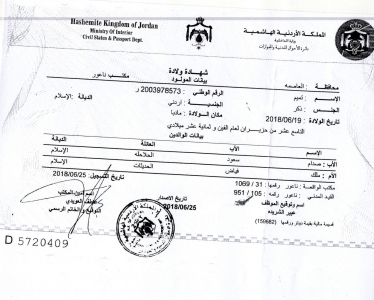 Hashemite Kingdom of Jordan
Ministry Of Interior
Civil Status & Passport Dept.
المملكة الأردنية الهاشمية
وزارة الداخلية
دائرة الأحوال المدنية والجوازات
شهادة ولادة
بيانات المولود
محافظة : العاصمه مكتب ناعور
الاسم : تميم الرقم الوطني : 2003978573 ر
الجنس : ذكر الجنسية : اردني الديانة : الإسلام
تاريخ الولادة : 2018/06/19 مكان الولادة : مادبا
التاسع عشر من حزيران لعام الفين و ثمانية عشر ميلادي
بيانات الوالدين
الاسم الأب العائلة الديانة
الأب : صدام سعود الإسلام
الأم : ملك فياض الإسلام
مكتب الواقعة : ناعور رقمها : 31 / 1069
القيد المدني : ناعور رقمه : 105 / 951 س
تاريخ التسجيل : 2018/06/25
اسم وتوقيع الموظف
عبير الشريده
تاريخ الاصدار
2018/06/25
اسم أمين المكتب
التوقيع والخاتم الرسمي
قسيمة مالية بقيمة دينار ورقمها (159682)
D 5720409